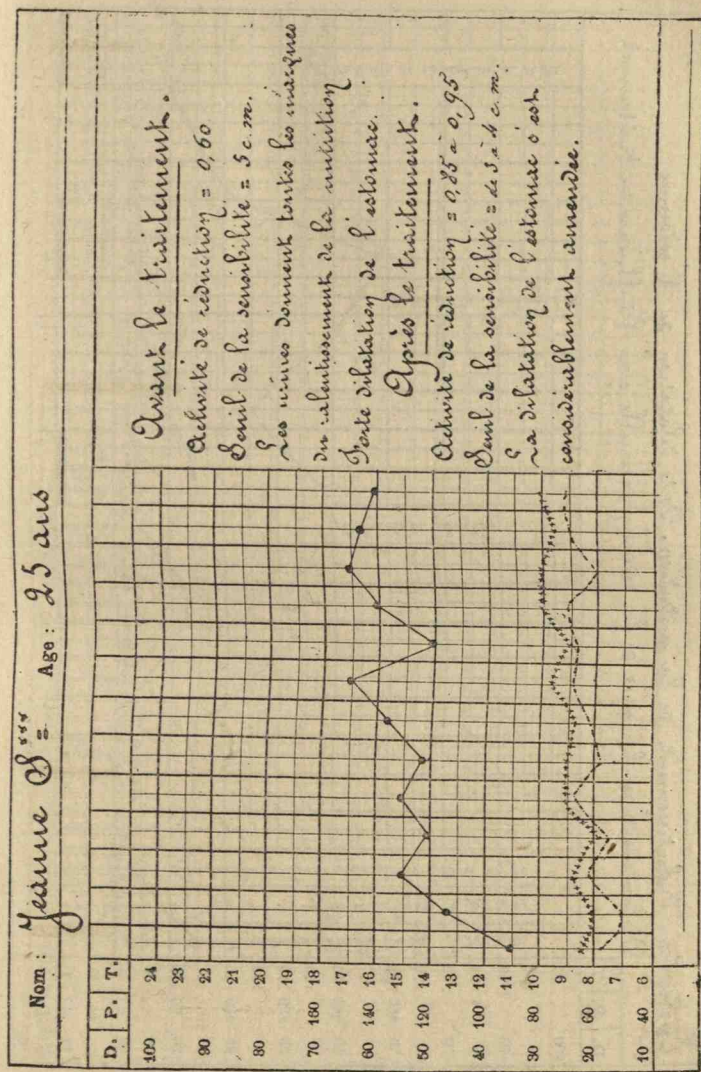 Nom : Jeanne S*** Age : 25 ans
D. P. T.
100 24
23
90 22
21
80 20
19
70 160 18
17
60 140 16
15
50 120 14
13
40 100 12
11
30 80 10
9
20 60 8
7
10 40 6
Avant le traitement.
Activité de réduction = 0,60
Seuil de la sensibilité = 5 c.m.
Les urines donnent toutes les marques
du ralentissement de la nutrition
Forte dilatation de l'estomac.
Après le traitement.
Activité de réduction = 0,85 à 0,95
Seuil de la sensibilité = de 3 à 4 c.m.
La dilatation de l'estomac s'est
considérablement amendée.